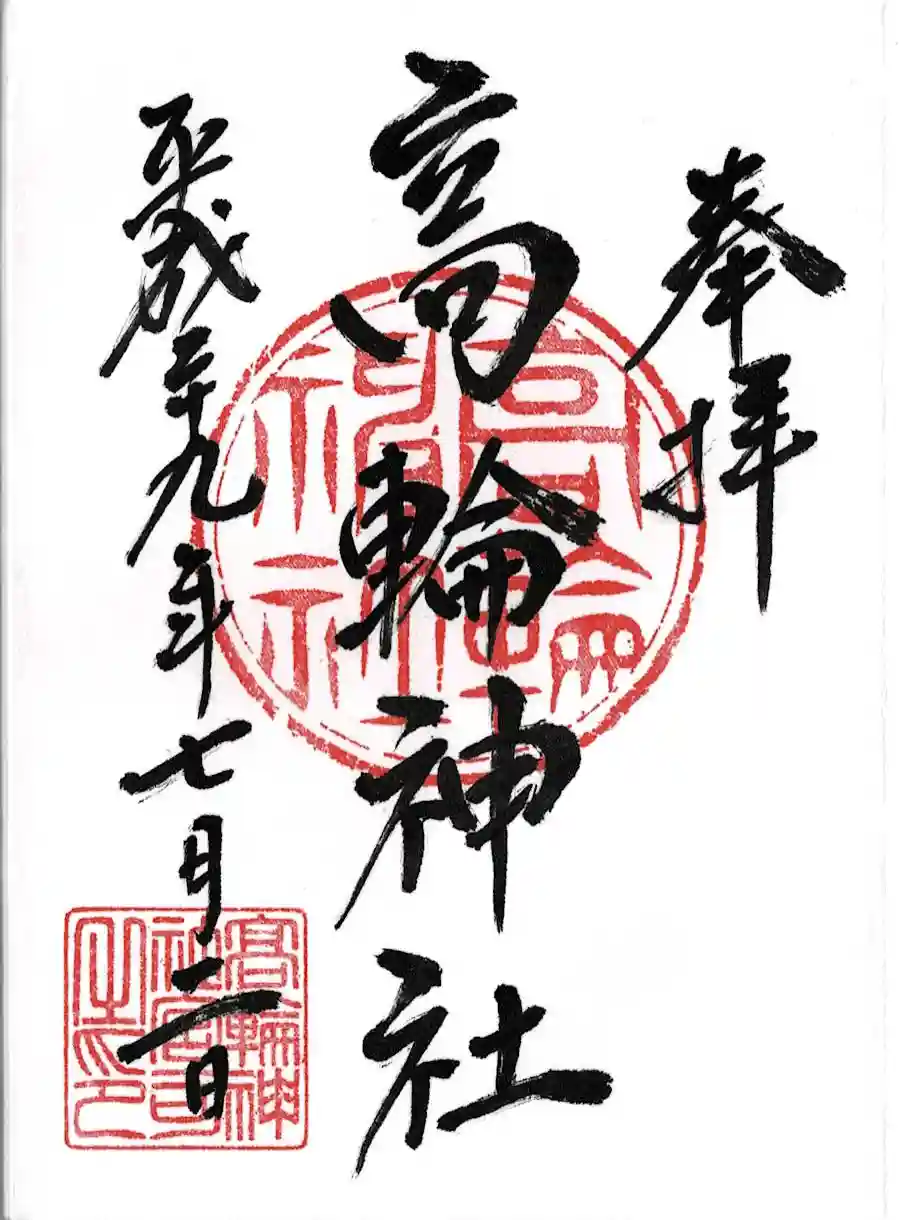 奉拝
高輪神社
平成二十九年七月二日
高輪
神社
高輪神
社宮司
之印